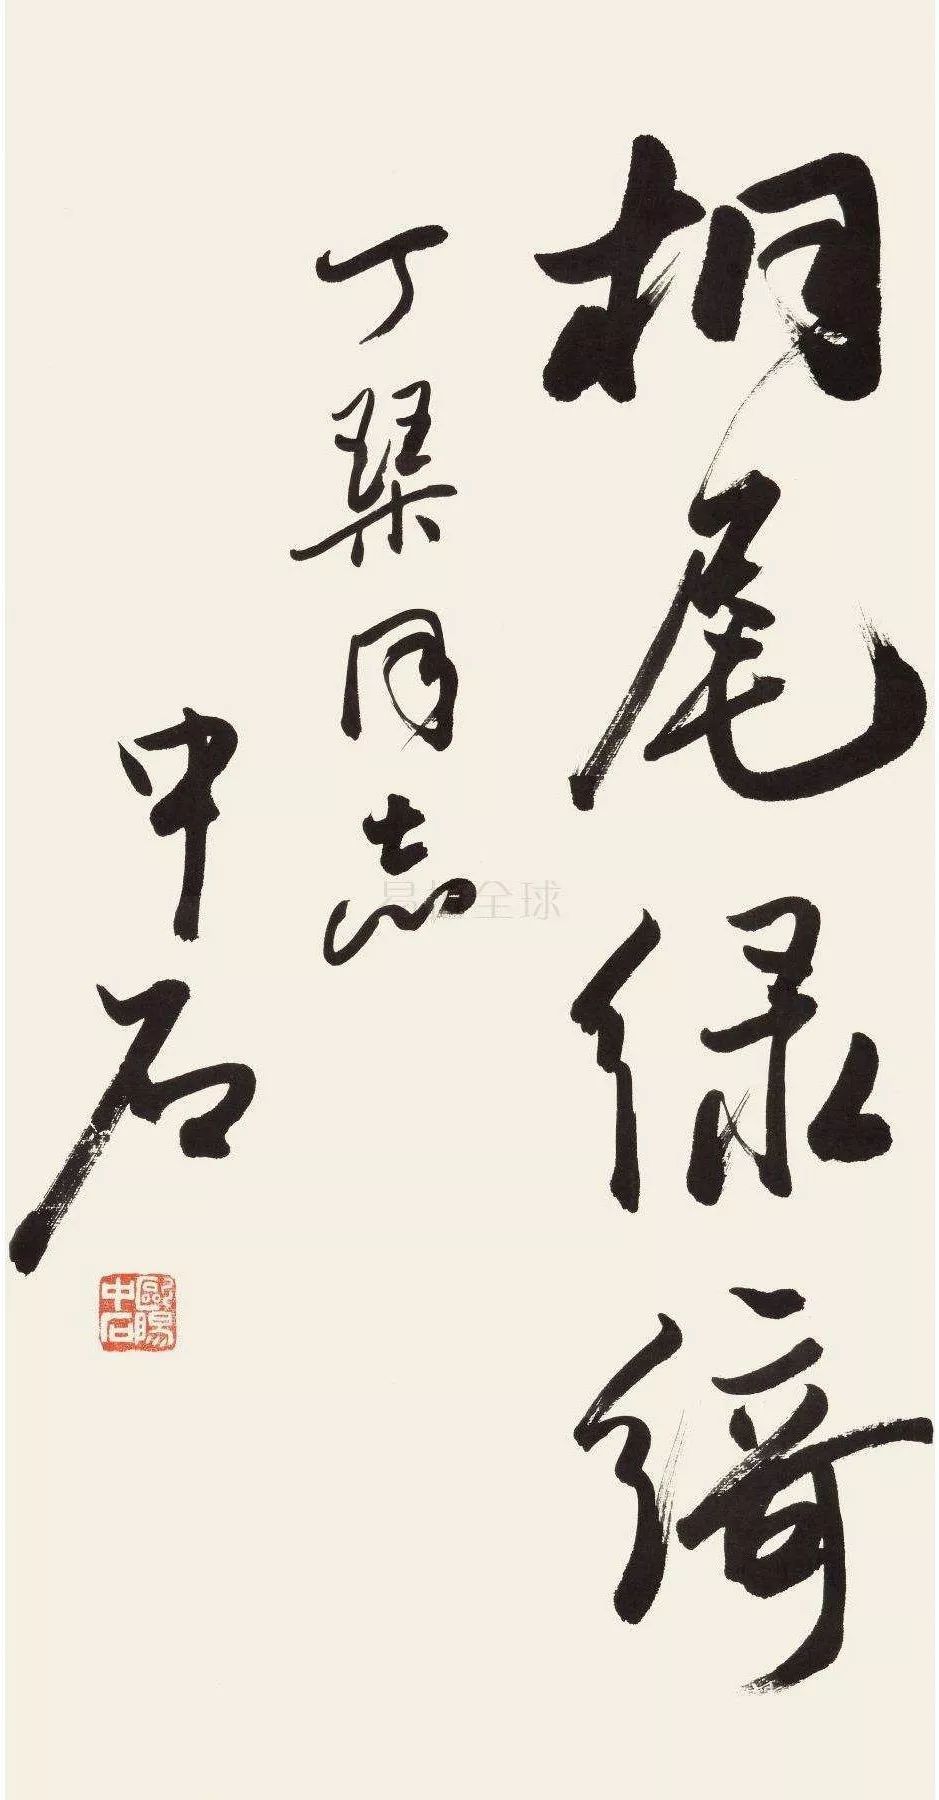 桐尾绿绮
丁琹同志
中石
歐陽中石
易拍全球